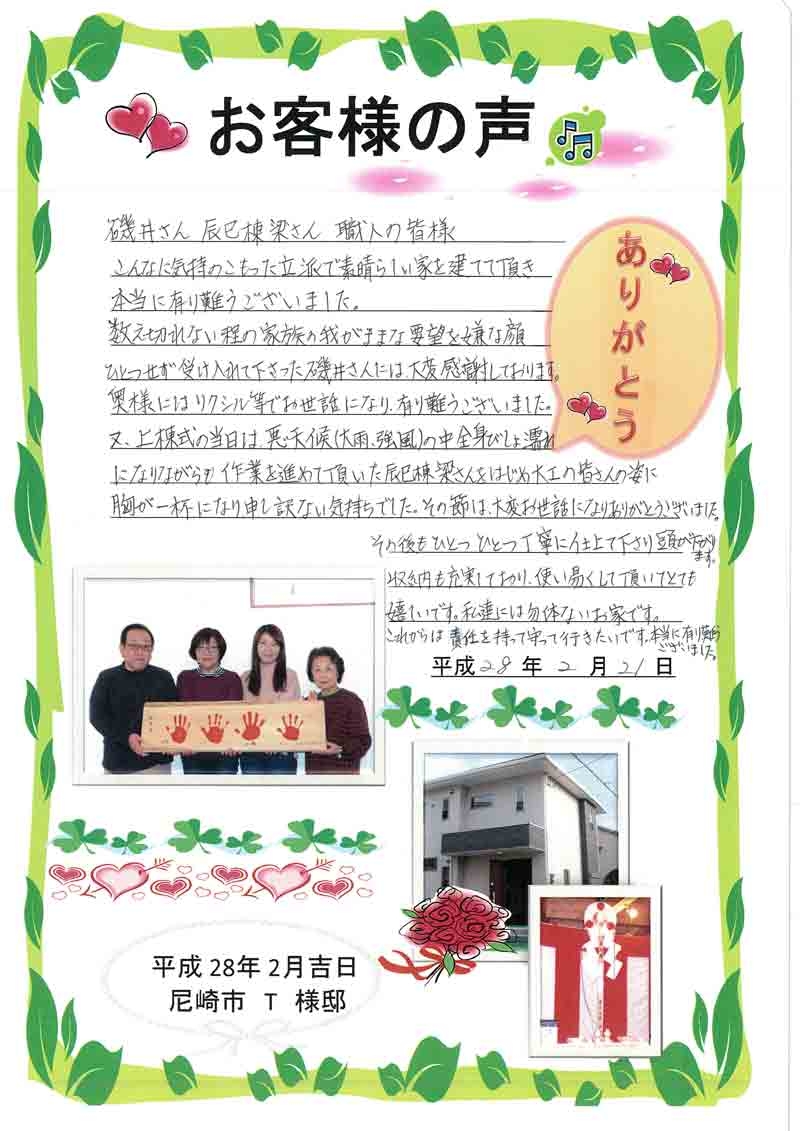 お客様の声
磯井さん 辰巳棟梁さん 職人の皆様
こんなに気持のこもった立派で素晴らしい家を建てて頂き
本当に有り難うございました。
数え切れない程の家族の我がままな要望を嫌な顔
ひとつせず受け入れて下さった磯井さんには、大変感謝しております。
奥様にはリクシル等でお世話になり、有り難うございました。
又、上棟式の当日は、悪天候(大雨、強風)の中全身びしょ濡れ
になりながらも作業を進めて頂いた辰巳棟梁さんをはじめ大工の皆さんの姿に
胸が一杯になり申し訳ない気持ちでした。その節は、大変お世話になりありがとうございました。
その後もひとつひとつ丁寧に仕上て下さり頭が下がり
ます。
収納も充実しており、使い易くして頂いてとても
嬉しいです。私達には勿体ないお家です。
これからは責任を持って守って行きたいです。本当に有り難う
ございました。
平成28年2月21日
ありがとう
平成28年2月吉日
尼崎市 T 様邸